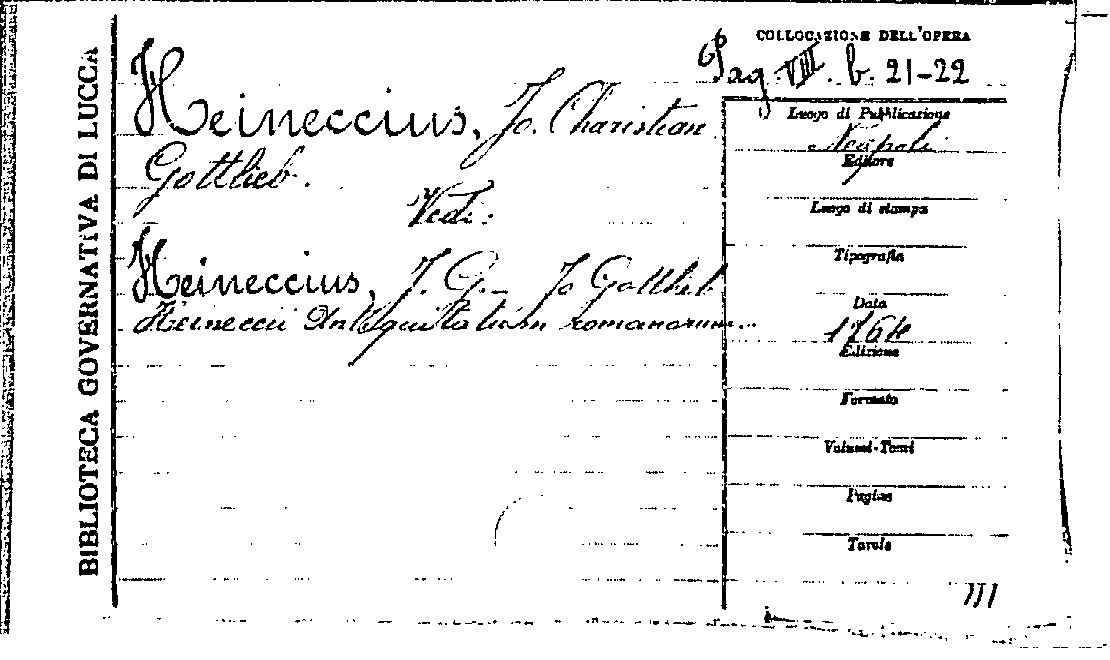 BIBLIOTECA GOVERNATIVA DI LUCCA
COLLOCAZIONE DELL'OPERA
Pag. VIII. b. 21-22
Heineccius, Jo. Charistian
Gottlieb.
Vedi:
Heineccius, J. G. - Jo Gottlieb
Heineccii Antiquitatum romanarum...
Luogo di Pubblicazione
Neapoli
Editore
Luogo di stampa
Tipografia
Data
1764
Edizione
Formato
Volumi-Tomi
Pagine
Tavole
III